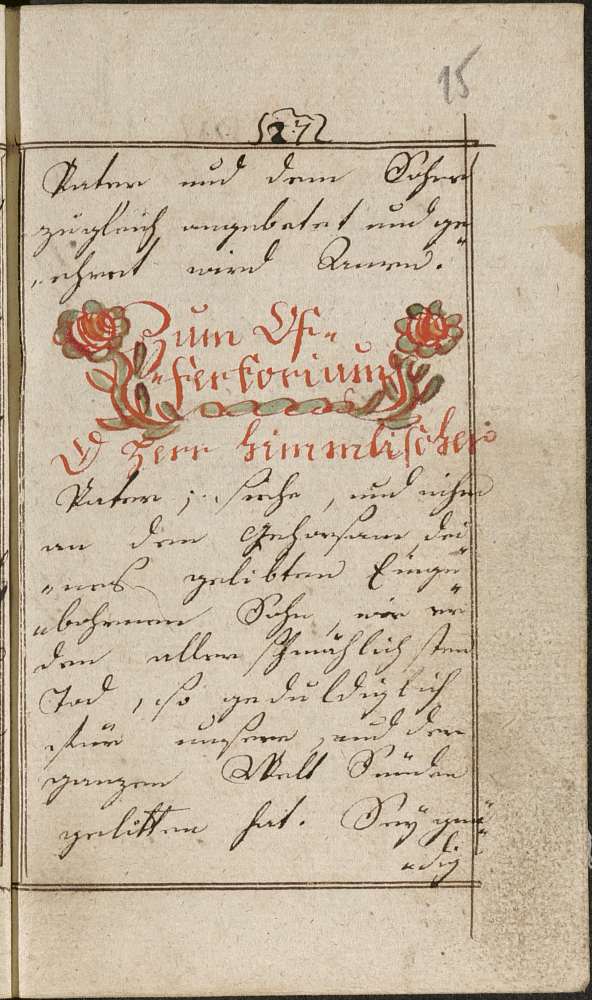 15
27
Vater und dem Sohn
zugleich angebetet und ge
„ehret wird Amen.
Zum Of„
„fertorium
O Herr himmlischer
Vater, siehe, und nihm
an den Gehorsam dei
„nes gelibten Einge
„bohrnen Sohn, wie er
den aller schmählichsten
Tod, so geduldiglich
für unsere, und der
ganzen Welt Sünden
gelitten hat. Sey gnä
„dig